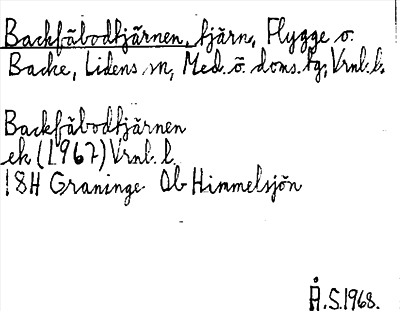 Backfäbodtjärnen, tjärn, Flygge o.
Backe, Lidens sn, Med. ö. doms. tg, Vrnl. l.
Backfäbodtjärnen
ek (1967) Vrnl. l.
18H Graninge Ob Himmelsjön
Å.S. 1968.